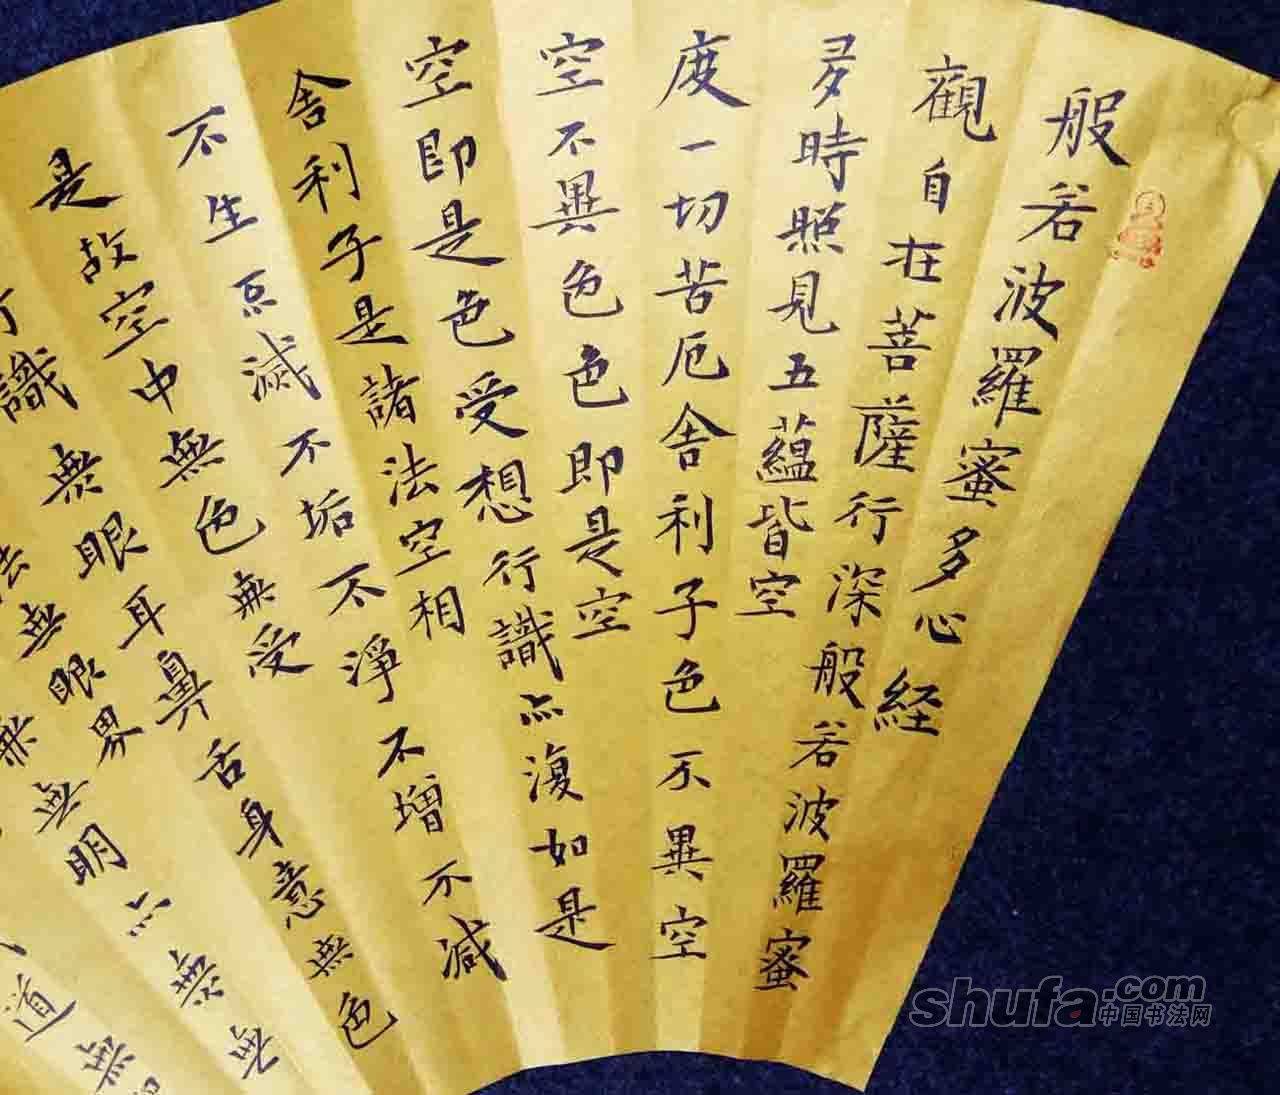 般若波羅蜜多心経
觀自在菩薩行深般若波羅蜜
多時照見五蘊皆空
度一切苦厄舍利子色不異空
空不異色色即是空
空即是色受想行識亦復如是
舍利子是諸法空相
不生亦滅不垢不淨不增不減
是故空中無色無受
行識無眼耳鼻舌身意無色
法無眼界
無無明亦無無
道無
shufa.com
中国书法网